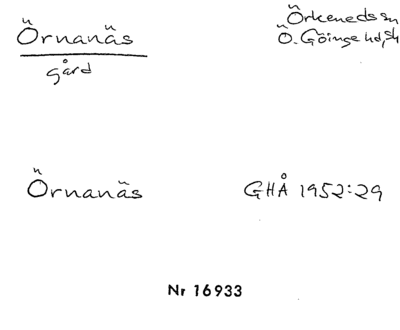 Örnanäs
gård
Örkeneds sn
Ö. Göinge hd, Sk
Örnanäs
GHÅ 1952:29
Nr 16933